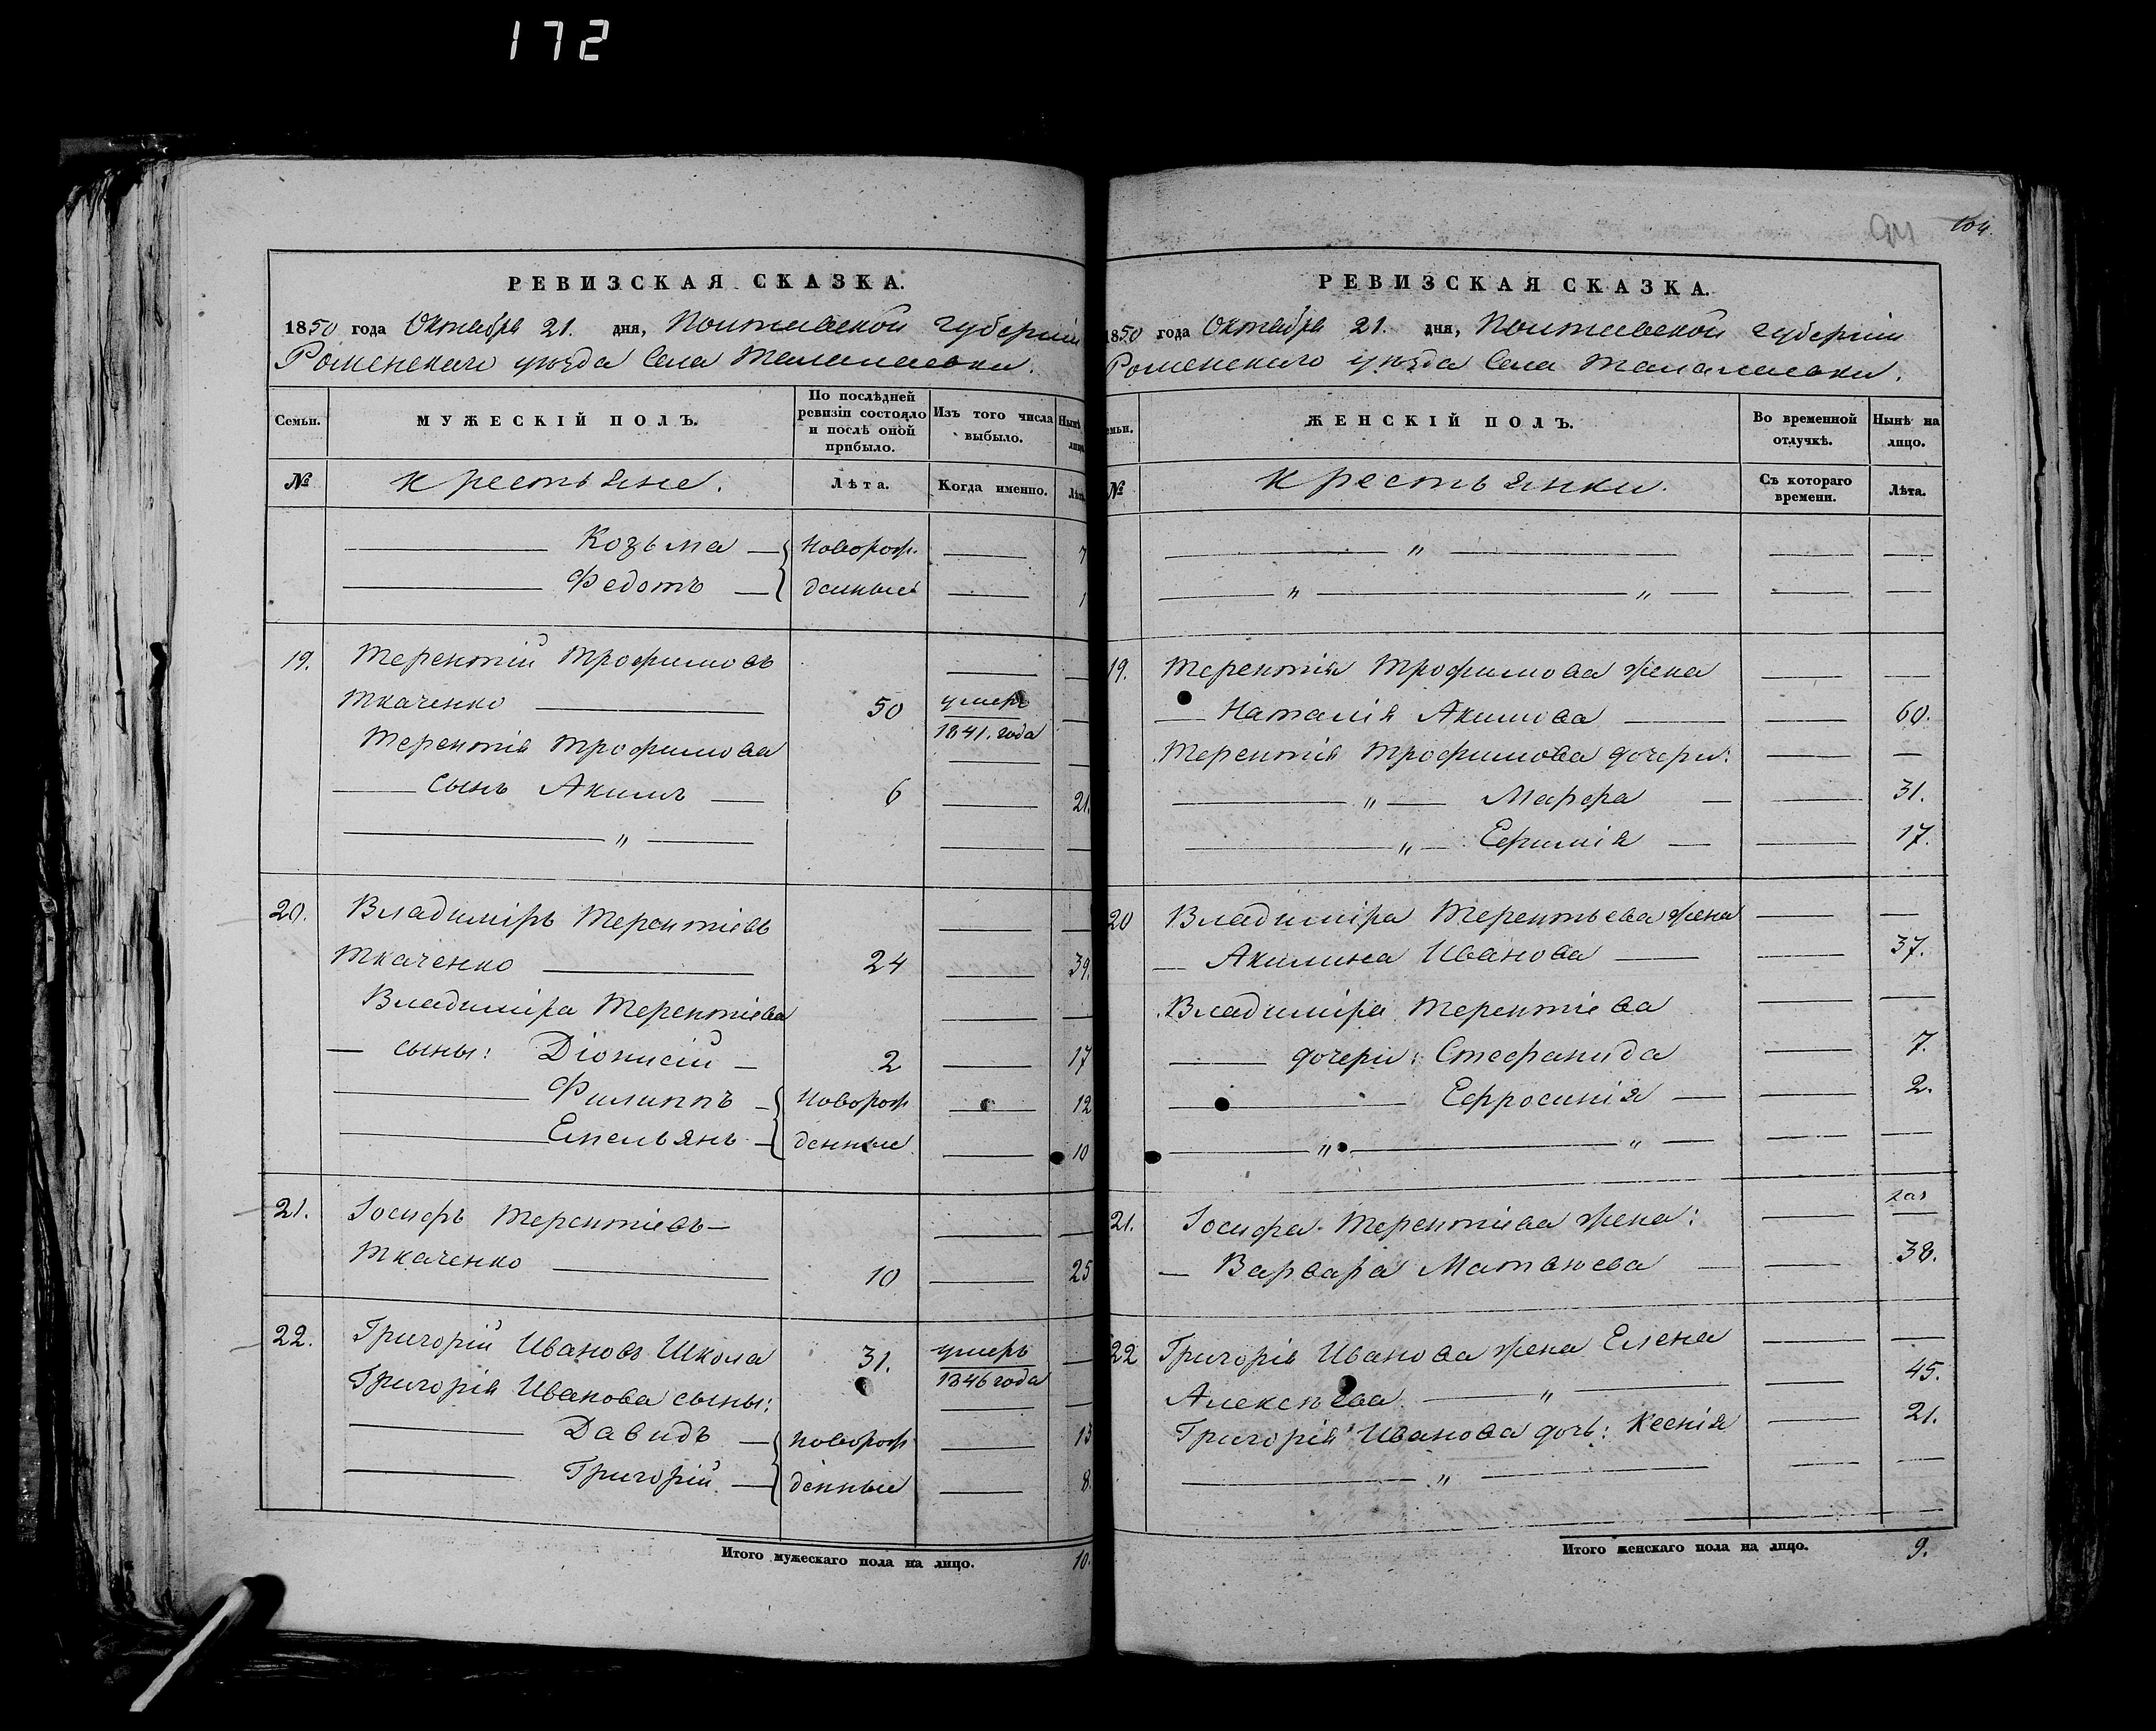 172
РЕВИЗСКАЯ СКАЗКА.
1850 года Октября 21. дня, Полтавской губерніи
Роменскаго уѣзда Села Талалаевки.
Семьи.
МУЖЕСКІЙ ПОЛЪ.
По послѣдней ревизіи состояло и послѣ оной прибыло.
Изъ того числа выбыло.
Нынѣ
лицо
№
Крестьяне.
Лѣта.
Когда именно.
Лѣта
Козьма — Новорож- — 7
Федотъ — денные — 1
19. Терентій Трофимовъ
Ткаченко — 50 умеръ 1841. года —
Терентія Трофимова
— сынъ Акимъ — 6 — 21.
— " —
20. Владиміръ Терентіевъ
Ткаченко — 24 — 39.
Владиміра Терентіева
— сыны: Діонисій — 2 — 17
Филиппъ — Новорож — 12
Емельянъ — денные — 10
21. Іосифъ Терентіевъ —
Ткаченко — 10 — 25
22. Григорій Ивановъ Школа 31. умеръ 1846 года —
Григорія Иванова сыны:
Давидъ — новорож — 13
Григорій — денные — 8.
Итого мужескаго пола на лицо. 10.
104
РЕВИЗСКАЯ СКАЗКА.
1850 года Октября 21. дня, Полтавской губерніи
Роменскаго уѣзда Села Талалаевки.
емьи.
ЖЕНСКІЙ ПОЛЪ.
Во временной отлучкѣ.
Нынѣ на лицо.
№
Крестьянки.
Съ котораго времени.
Лѣта.
— " —
— " — " —
19. Терентія Трофимова жена
— Наталія Акимова — 60.
Терентія Трофимова дочери:
— " — Марфа — 31.
— " — Ефимія — 17.
20 Владиміра Терентьева жена
— Акилина Иванова — 37.
Владиміра Терентіева
— дочери: Стефанида 7.
— Ефросинія — 2.
— " — " —
21. Іосифа Терентіева жена:
— Варвара Матвѣева — 38.
22 Григорія Иванова жена Елена
Алексѣева — " — 45.
Григорія Иванова дочь: Ксенія 21.
— " —
Итого женскаго пола на лицо. 9.